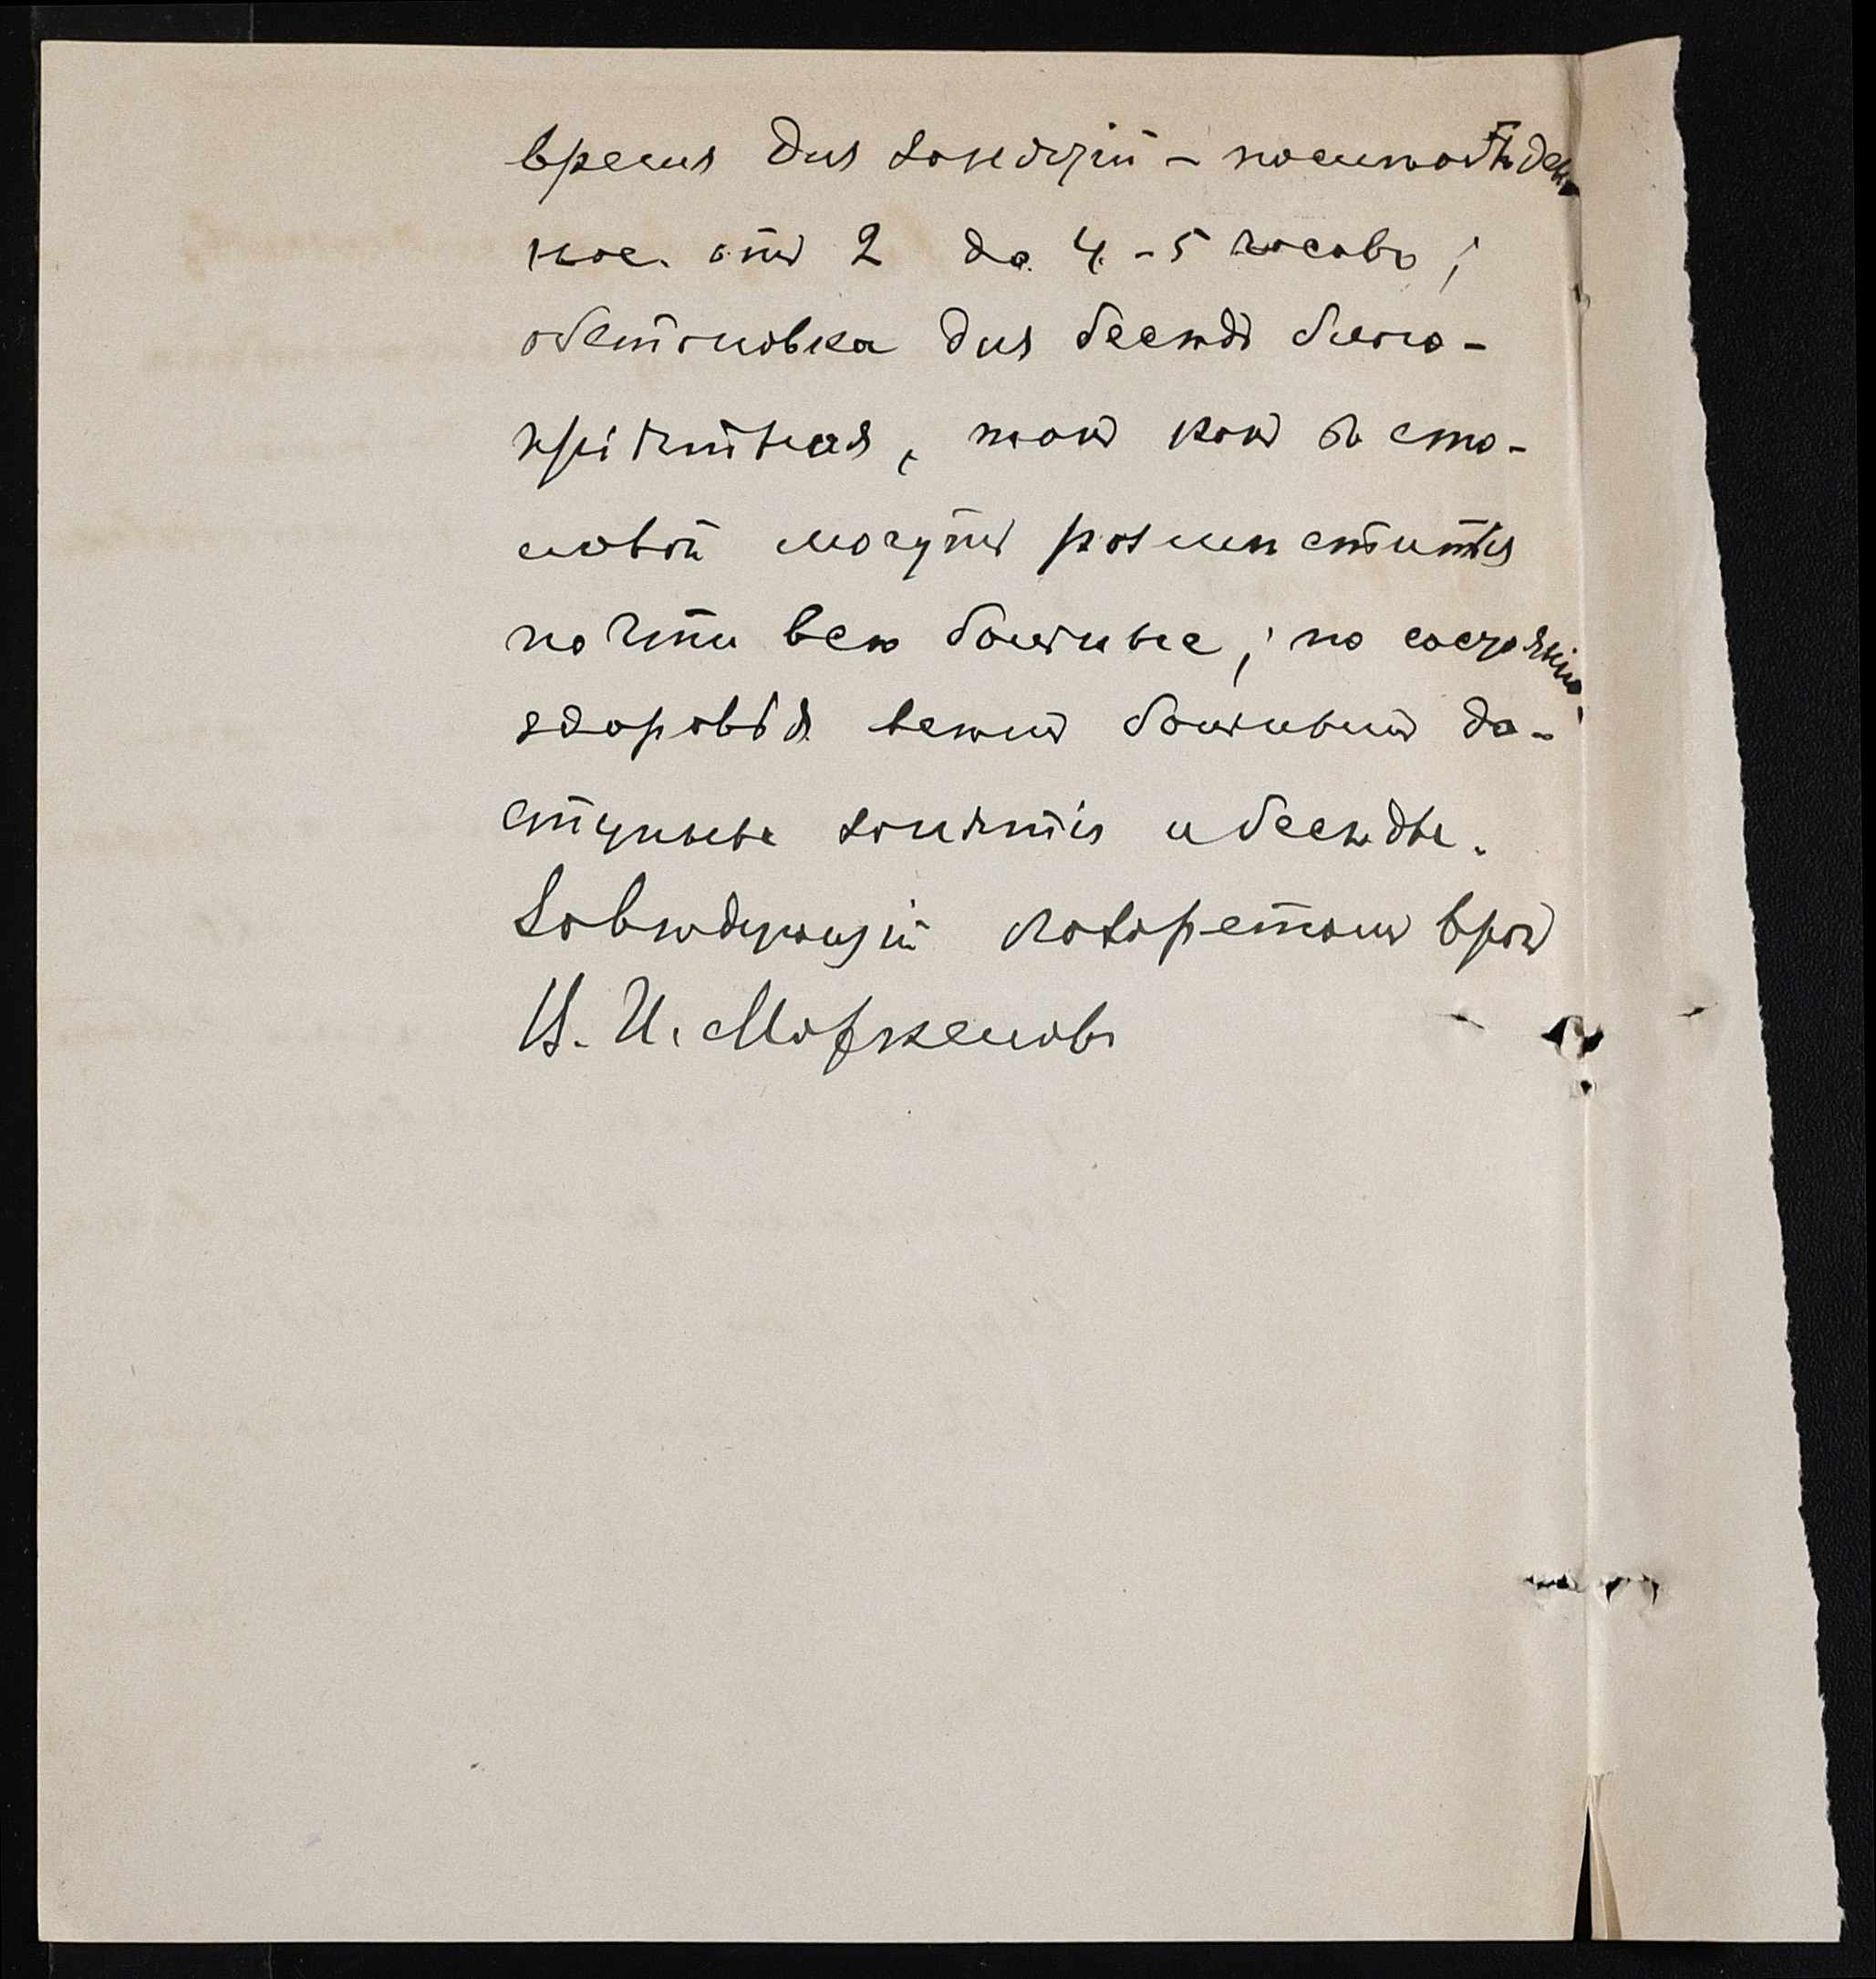 время для занятій – послѣобѣден
ное отъ 2 до 4 - 5 часовъ;
обстановка для бесѣдъ благо-
пріятная, такъ какъ въ сто-
ловой могутъ размѣститься
почти всѣ больные; по состоянію
здоровья всѣмъ больнымъ до-
ступны занятія и бесѣды.
Завѣдующій лазаретомъ врачъ
И. Маркеловъ